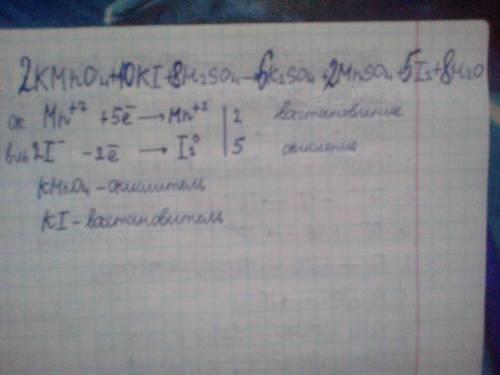 2KMnO4+10KI+8H2SO4→6K2SO4+2MnSO4+5I2+8H2O
ок Mn+7 +5ē→Mn+2 | 2 востановление
в-ль 2I- -2ē → I2 0 | 5 окисление
KMnO4-окислитель
KI-востановитель